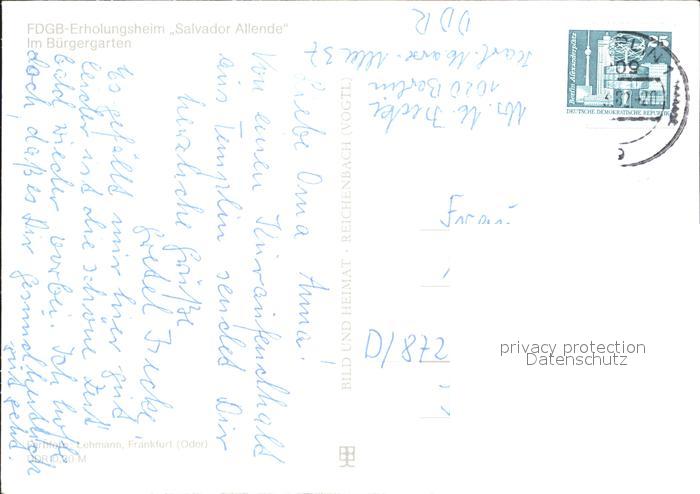 FDGB-Erholungsheim „Salvador Allende“
Im Bürgergarten
Liebe Oma Anna!
Von einen Kuraufenthalt
aus Templin sendet Dir
herzliche Grüße
Gretel
Es gefällt mir hier gut,
leider ist die schöne Zeit
bald wieder vorbei. Ich hoffe
doch, daß es Dir gesundheitlich
gut geht.
Lehmann, Frankfurt (Oder)
M
BILD UND HEIMAT · REICHENBACH (VOGTL
1020 Berlin
Karl-Marx-Allee 37
DDR
25
Berlin, Alexanderplatz
DEUTSCHE DEMOKRATISCHE REPUBLIK
Frau
D/872
privacy protection
Datenschutz